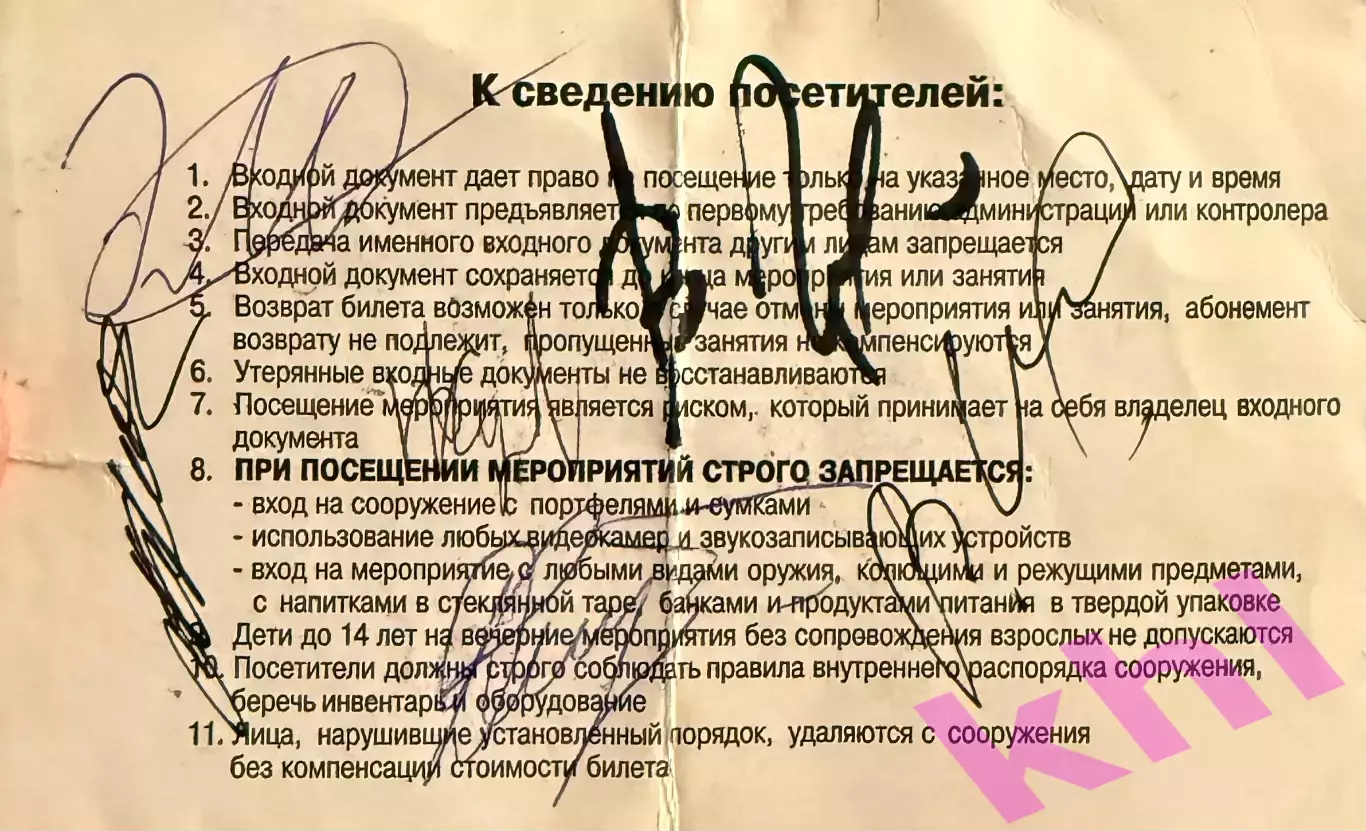 К сведению посетителей:
1. Входной документ дает право на посещение только на указанное место, дату и время
2. Входной документ предъявляется по первому требованию администрации или контролера
3. Передача именного входного документа другим лицам запрещается
4. Входной документ сохраняется до конца мероприятия или занятия
5. Возврат билета возможен только в случае отмены мероприятия или занятия, абонемент
возврату не подлежит, пропущенные занятия не компенсируются
6. Утерянные входные документы не восстанавливаются
7. Посещение мероприятия является риском, который принимает на себя владелец входного
документа
8. ПРИ ПОСЕЩЕНИИ МЕРОПРИЯТИЙ СТРОГО ЗАПРЕЩАЕТСЯ:
- вход на сооружение с портфелями и сумками
- использование любых видеокамер и звукозаписывающих устройств
- вход на мероприятие с любыми видами оружия, колющими и режущими предметами,
с напитками в стеклянной таре, банками и продуктами питания в твердой упаковке
9. Дети до 14 лет на вечерние мероприятия без сопровождения взрослых не допускаются
10. Посетители должны строго соблюдать правила внутреннего распорядка сооружения,
беречь инвентарь и оборудование
11. Лица, нарушившие установленный порядок, удаляются с сооружения
без компенсации стоимости билета
khl